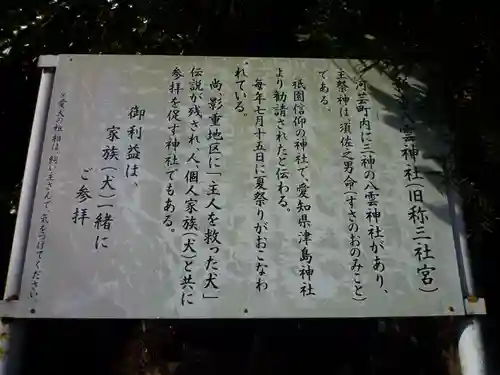 八雲神社(旧称三社宮)
河芸町内に三神の八雲神社があり、
主祭神は、須佐之男命(すさのおのみこと)
である。
祇園信仰の神社で、愛知県津島神社
より勧請されたと伝わる。
毎年七月十五日に夏祭りがおこなわ
れている。
尚、影重地区に「主人を救った犬」
伝説が残され、人、個人家族(犬)と共に
参拝を促す神社でもある。
御利益は、
家族(犬)一緒に
ご参拝
※愛犬の粗相は飼い主さんで、気をつけてください。